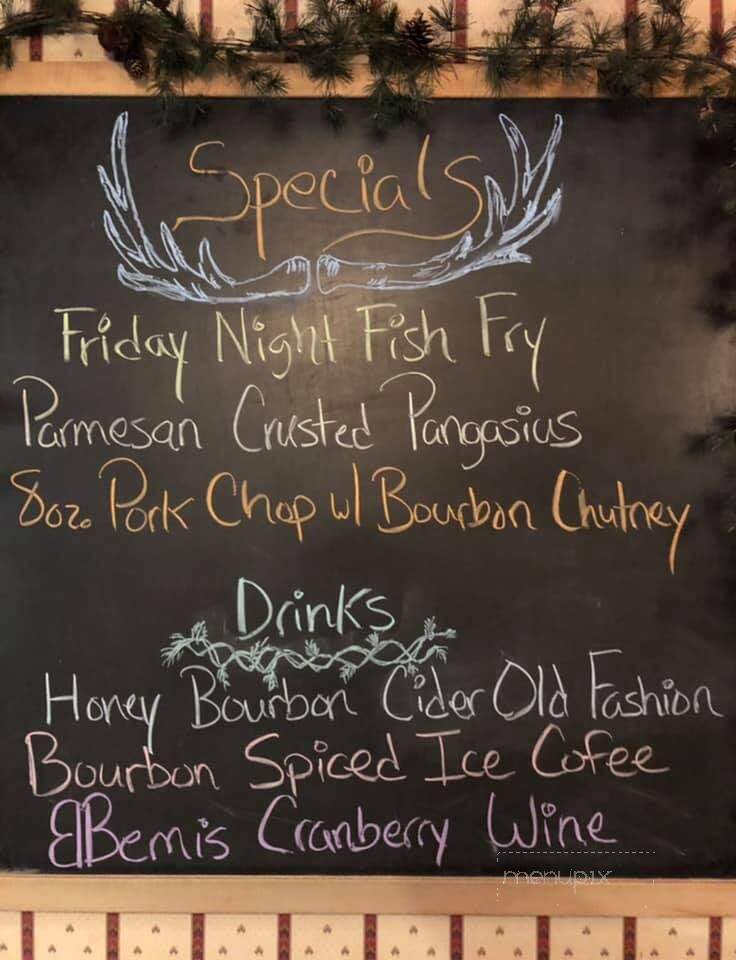 Specials
Friday Night Fish Fry
Parmesan Crusted Pangasius
8oz. Pork Chop w/ Bourbon Chutney
Drinks
Honey Bourbon Cider Old Fashion
Bourbon Spiced Ice Cofee
Bemis Cranberry Wine
menupix